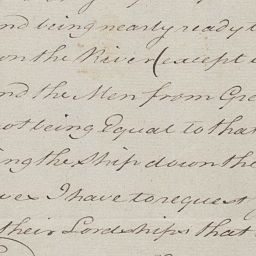 nd being nearly ready t
on the River (except
nd the Men from Gre
ot being Equal to that
ing the Ship down the
ver I have to request
their Lordships that